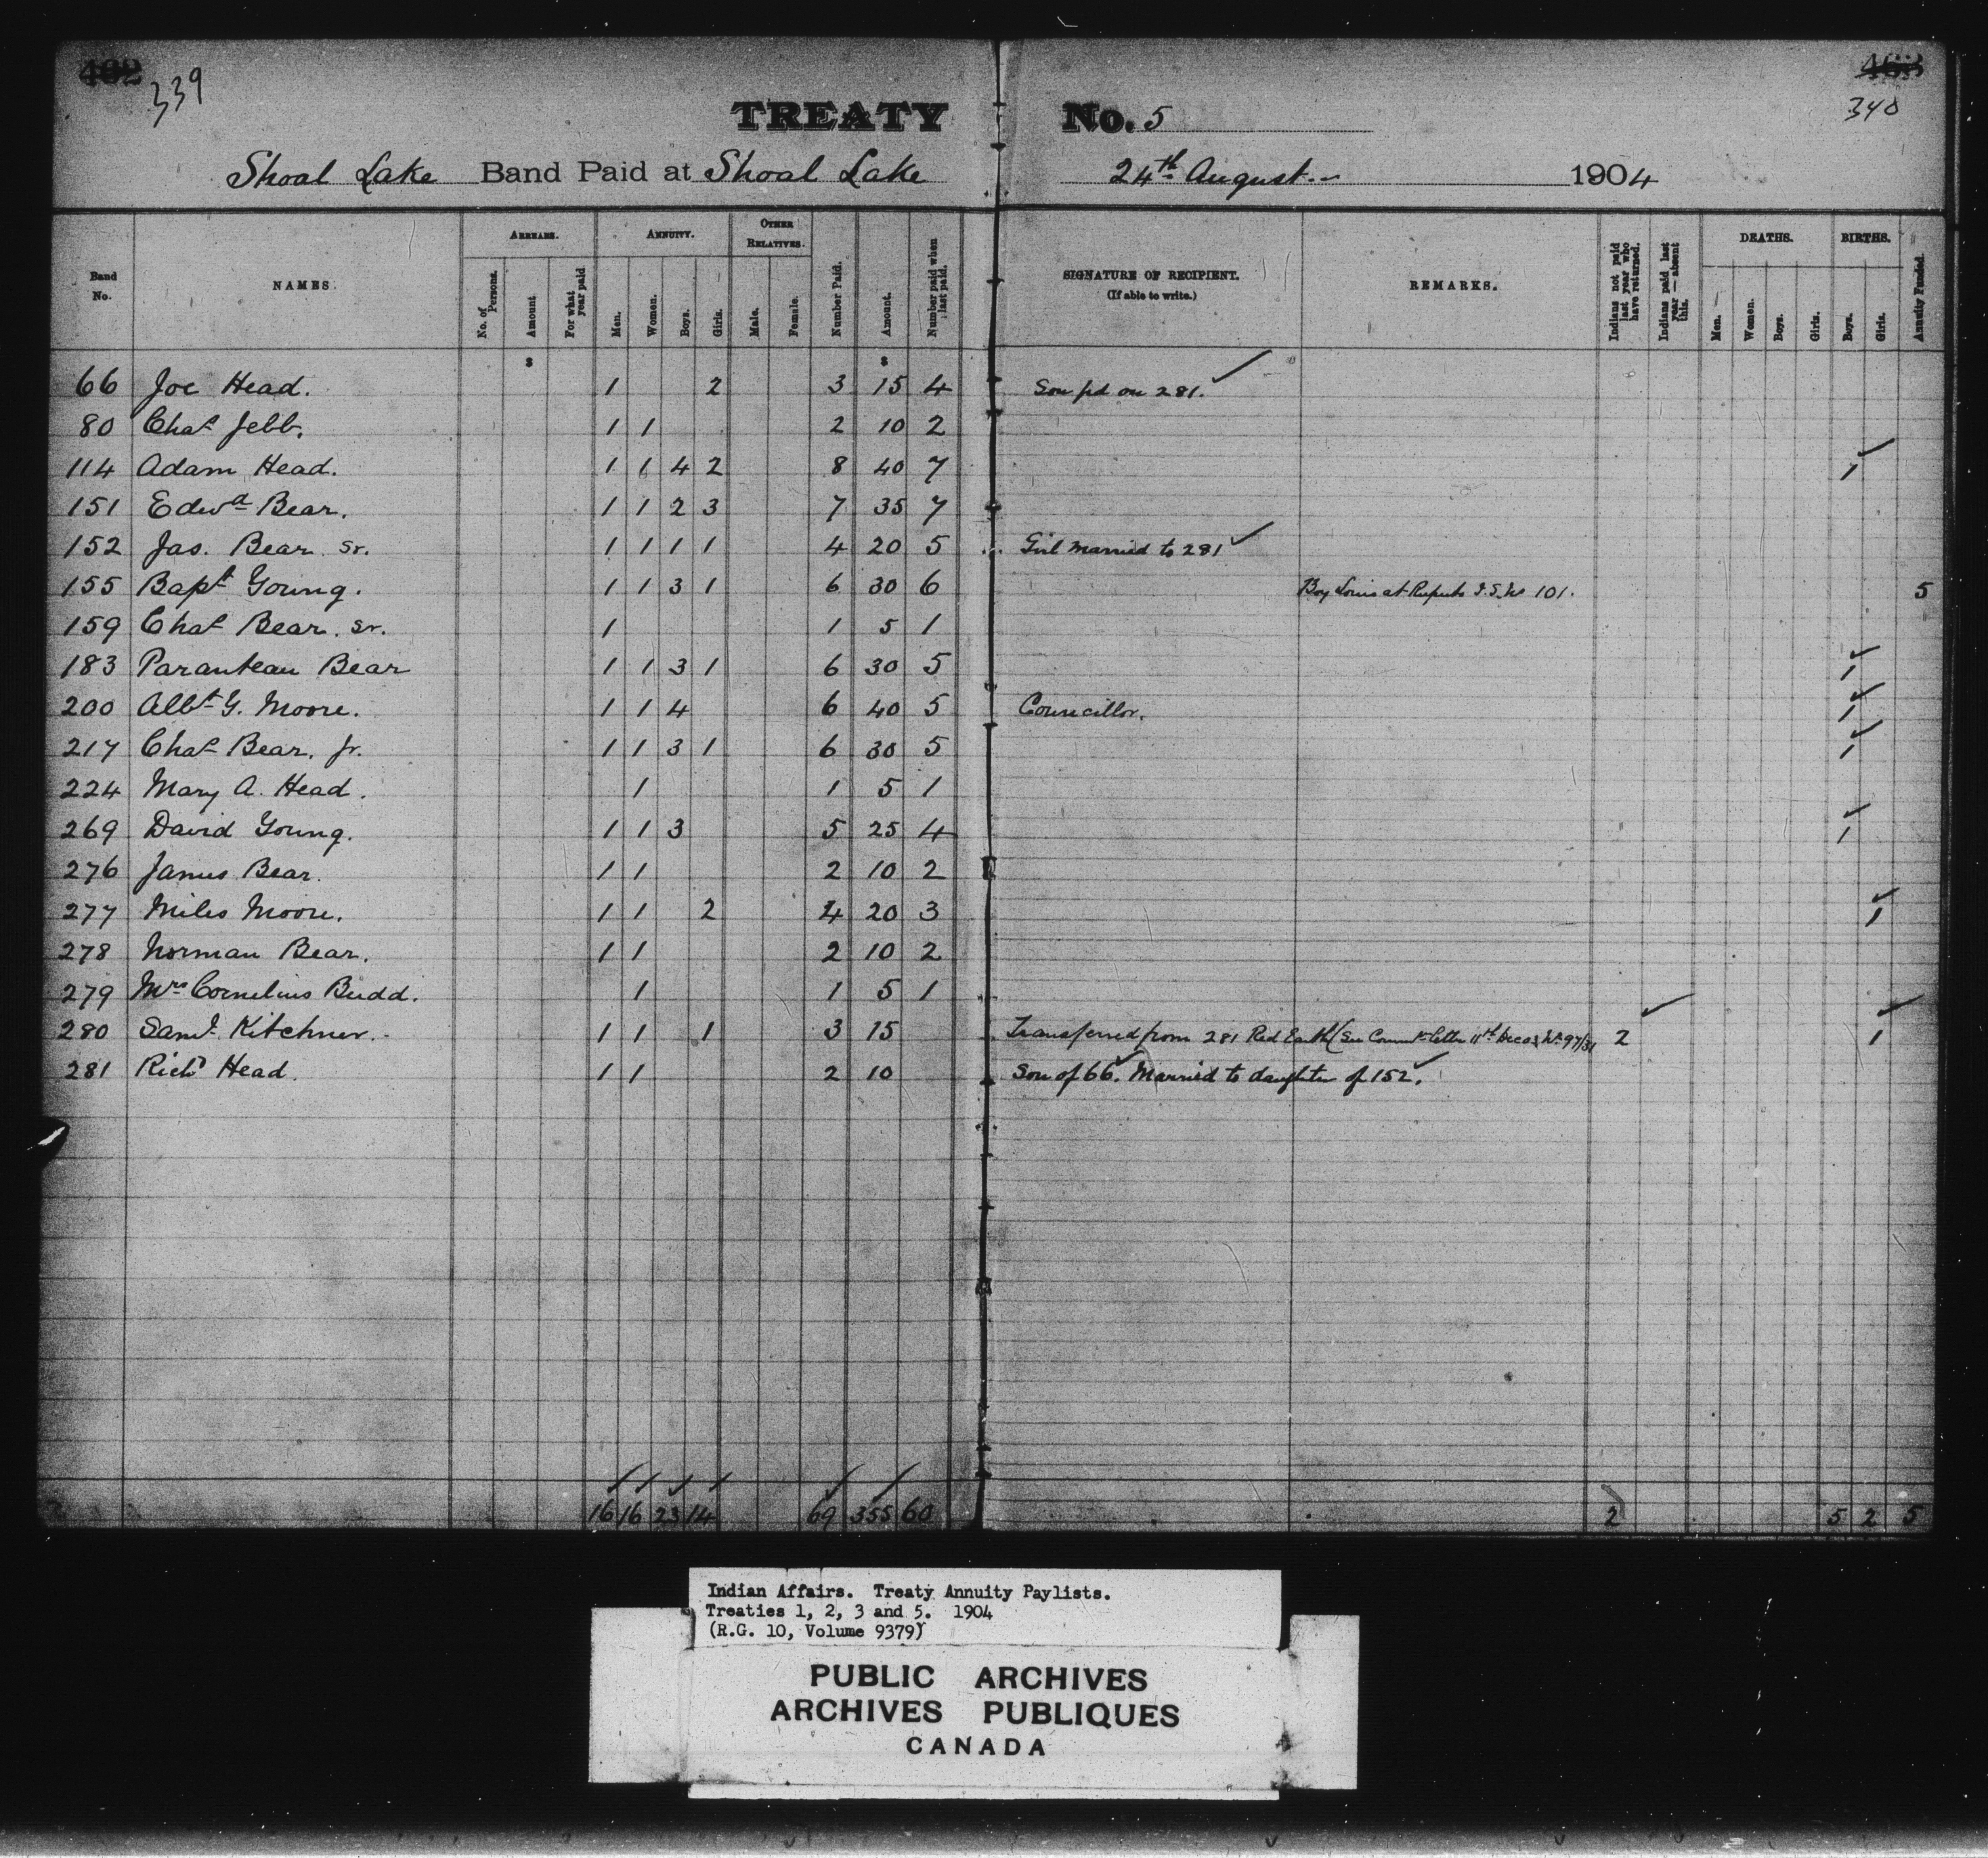 402 339 463 340
TREATY No. 5
Shoal Lake Band Paid at Shoal Lake 24th August 1904
Band No. NAMES. ARREARS. No. of Persons. Amount For what year paid ANNUITY. Men. Women. Boys. Girls. OTHER RELATIVES. Male. Female. Number Paid. Amount. Number paid when last paid. SIGNATURE OF RECIPIENT. (If able to write.) REMARKS. Indians not paid last year who have returned. Indians paid last year—absent this. DEATHS. Men. Women. Boys. Girls. BIRTHS. Boys. Girls. Annuity Funded.
$ $
66 Joe Head. 1 2 3 15 4 Son pd on 281. ✓
80 Chas Jebb. 1 1 2 10 2
114 Adam Head. 1 1 4 2 8 40 7 1 ✓
151 Edwd Bear. 1 1 2 3 7 35 7
152 Jas. Bear Sr. 1 1 1 1 4 20 5 Girl married to 281 ✓
155 Bapt Young. 1 1 3 1 6 30 6 Boy Louis at Ruperts I.S. No 101. 5
159 Chas Bear. Sr. 1 1 5 1
183 Paranteau Bear 1 1 3 1 6 30 5 1 ✓
200 Albt G. Moore. 1 1 4 6 40 5 Councillor. 1 ✓
217 Chas Bear. Jr. 1 1 3 1 6 30 5 1 ✓
224 Mary A. Head. 1 1 5 1
269 David Young. 1 1 3 5 25 4 1 ✓
276 James Bear. 1 1 2 10 2
277 Miles Moore. 1 1 2 4 20 3 1 ✓
278 Norman Bear. 1 1 2 10 2
279 Mrs Cornelius Budd. 1 1 5 1
280 Saml Kitchner. 1 1 1 3 15 Transferred from 281 Red Earth (See letter 11th Dec 03 No 97/31 2 ✓ 1 ✓
281 Richd Head. 1 1 2 10 Son of 66. ✓ Married to daughter of 152. ✓
16 16 23 14 69 355 60 2 5 2 5
Indian Affairs. Treaty Annuity Paylists.
Treaties 1, 2, 3 and 5. 1904
(R.G. 10, Volume 9379)
PUBLIC ARCHIVES
ARCHIVES PUBLIQUES
CANADA